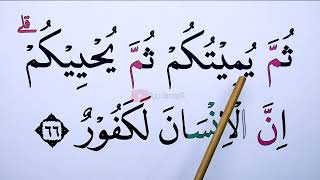 ثُمَّ يُمِيْتُكُمْ ثُمَّ يُحْيِيْكُمْ ۗ
اِنَّ الْاِنْسَانَ لَكَفُوْرٌ ﴿٦٦﴾